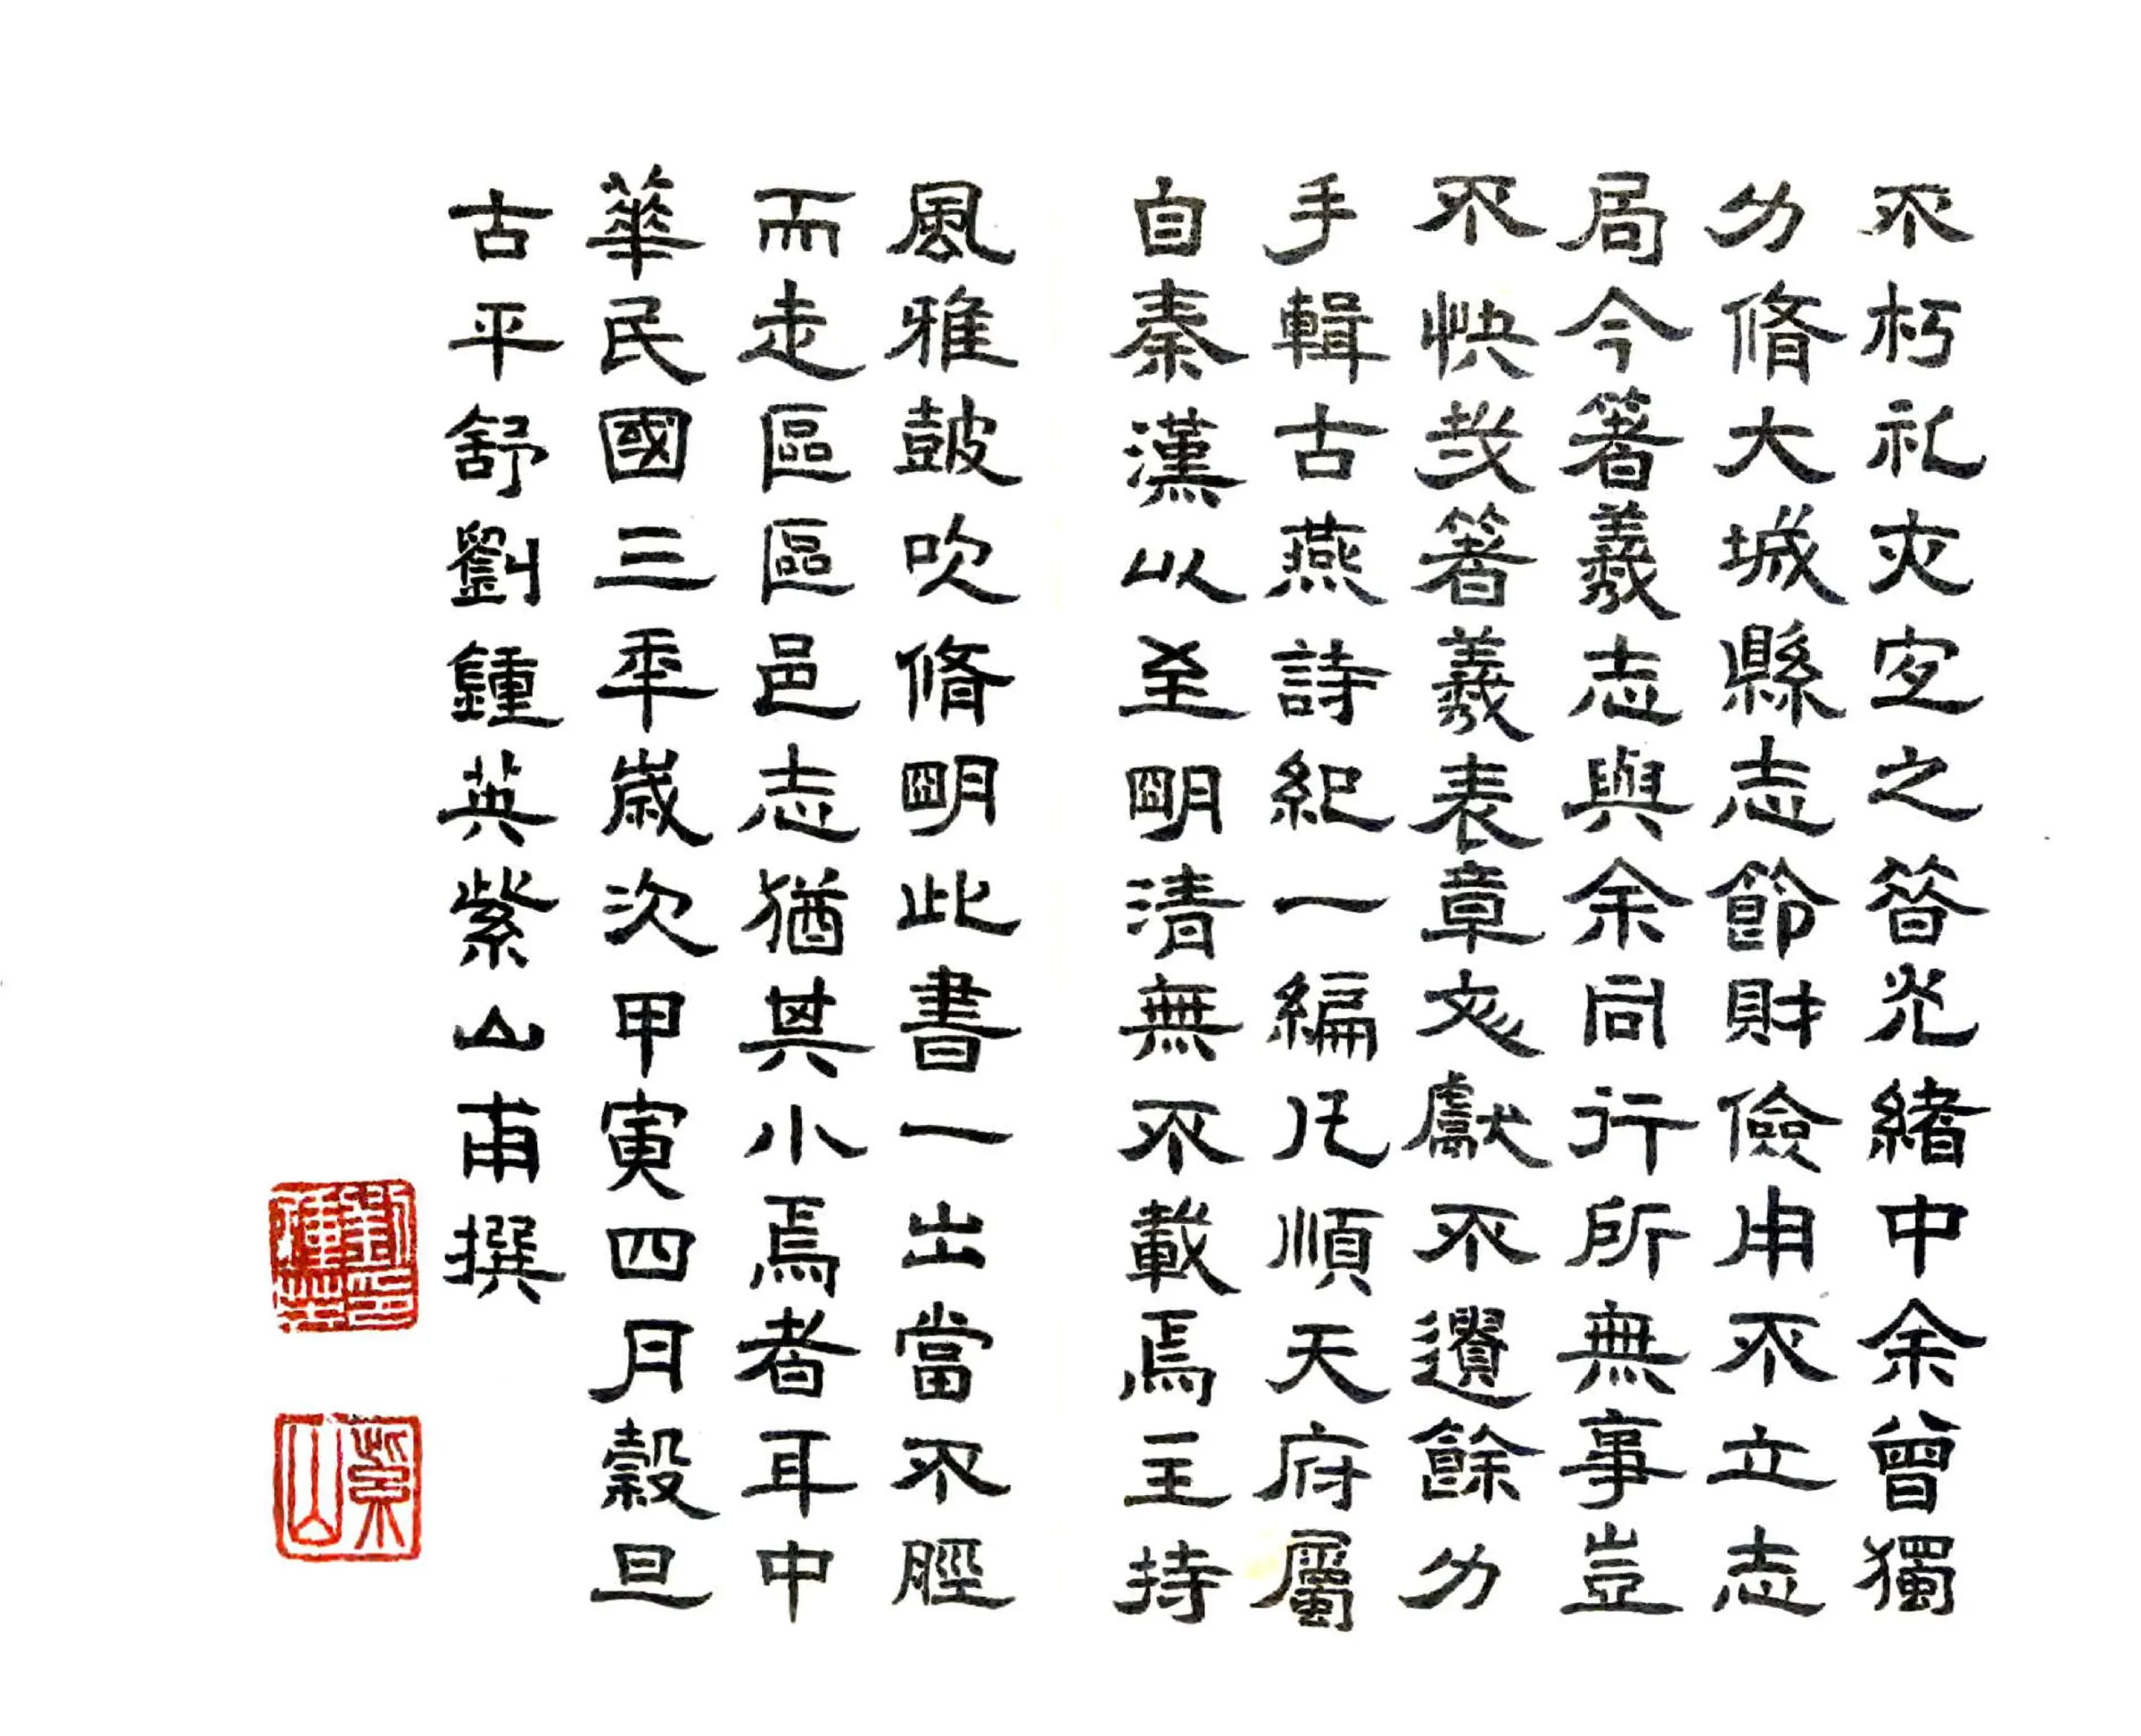 不朽礼亦宜之昔光緒中余曾獨
力脩大城縣志節財儉用不立志
局今箸羲志與余同行所無事豈
不快哉箸羲表章文獻不遺餘力
手輯古燕詩紀一編凡順天府屬
自秦漢以至明清無不載焉主持
風雅鼓吹脩明此書一出當不脛
而走區區邑志猶其小焉者耳中
華民國三年歲次甲寅四月穀旦
古平舒劉鍾英紫山甫撰
劉印鍾英
紫山